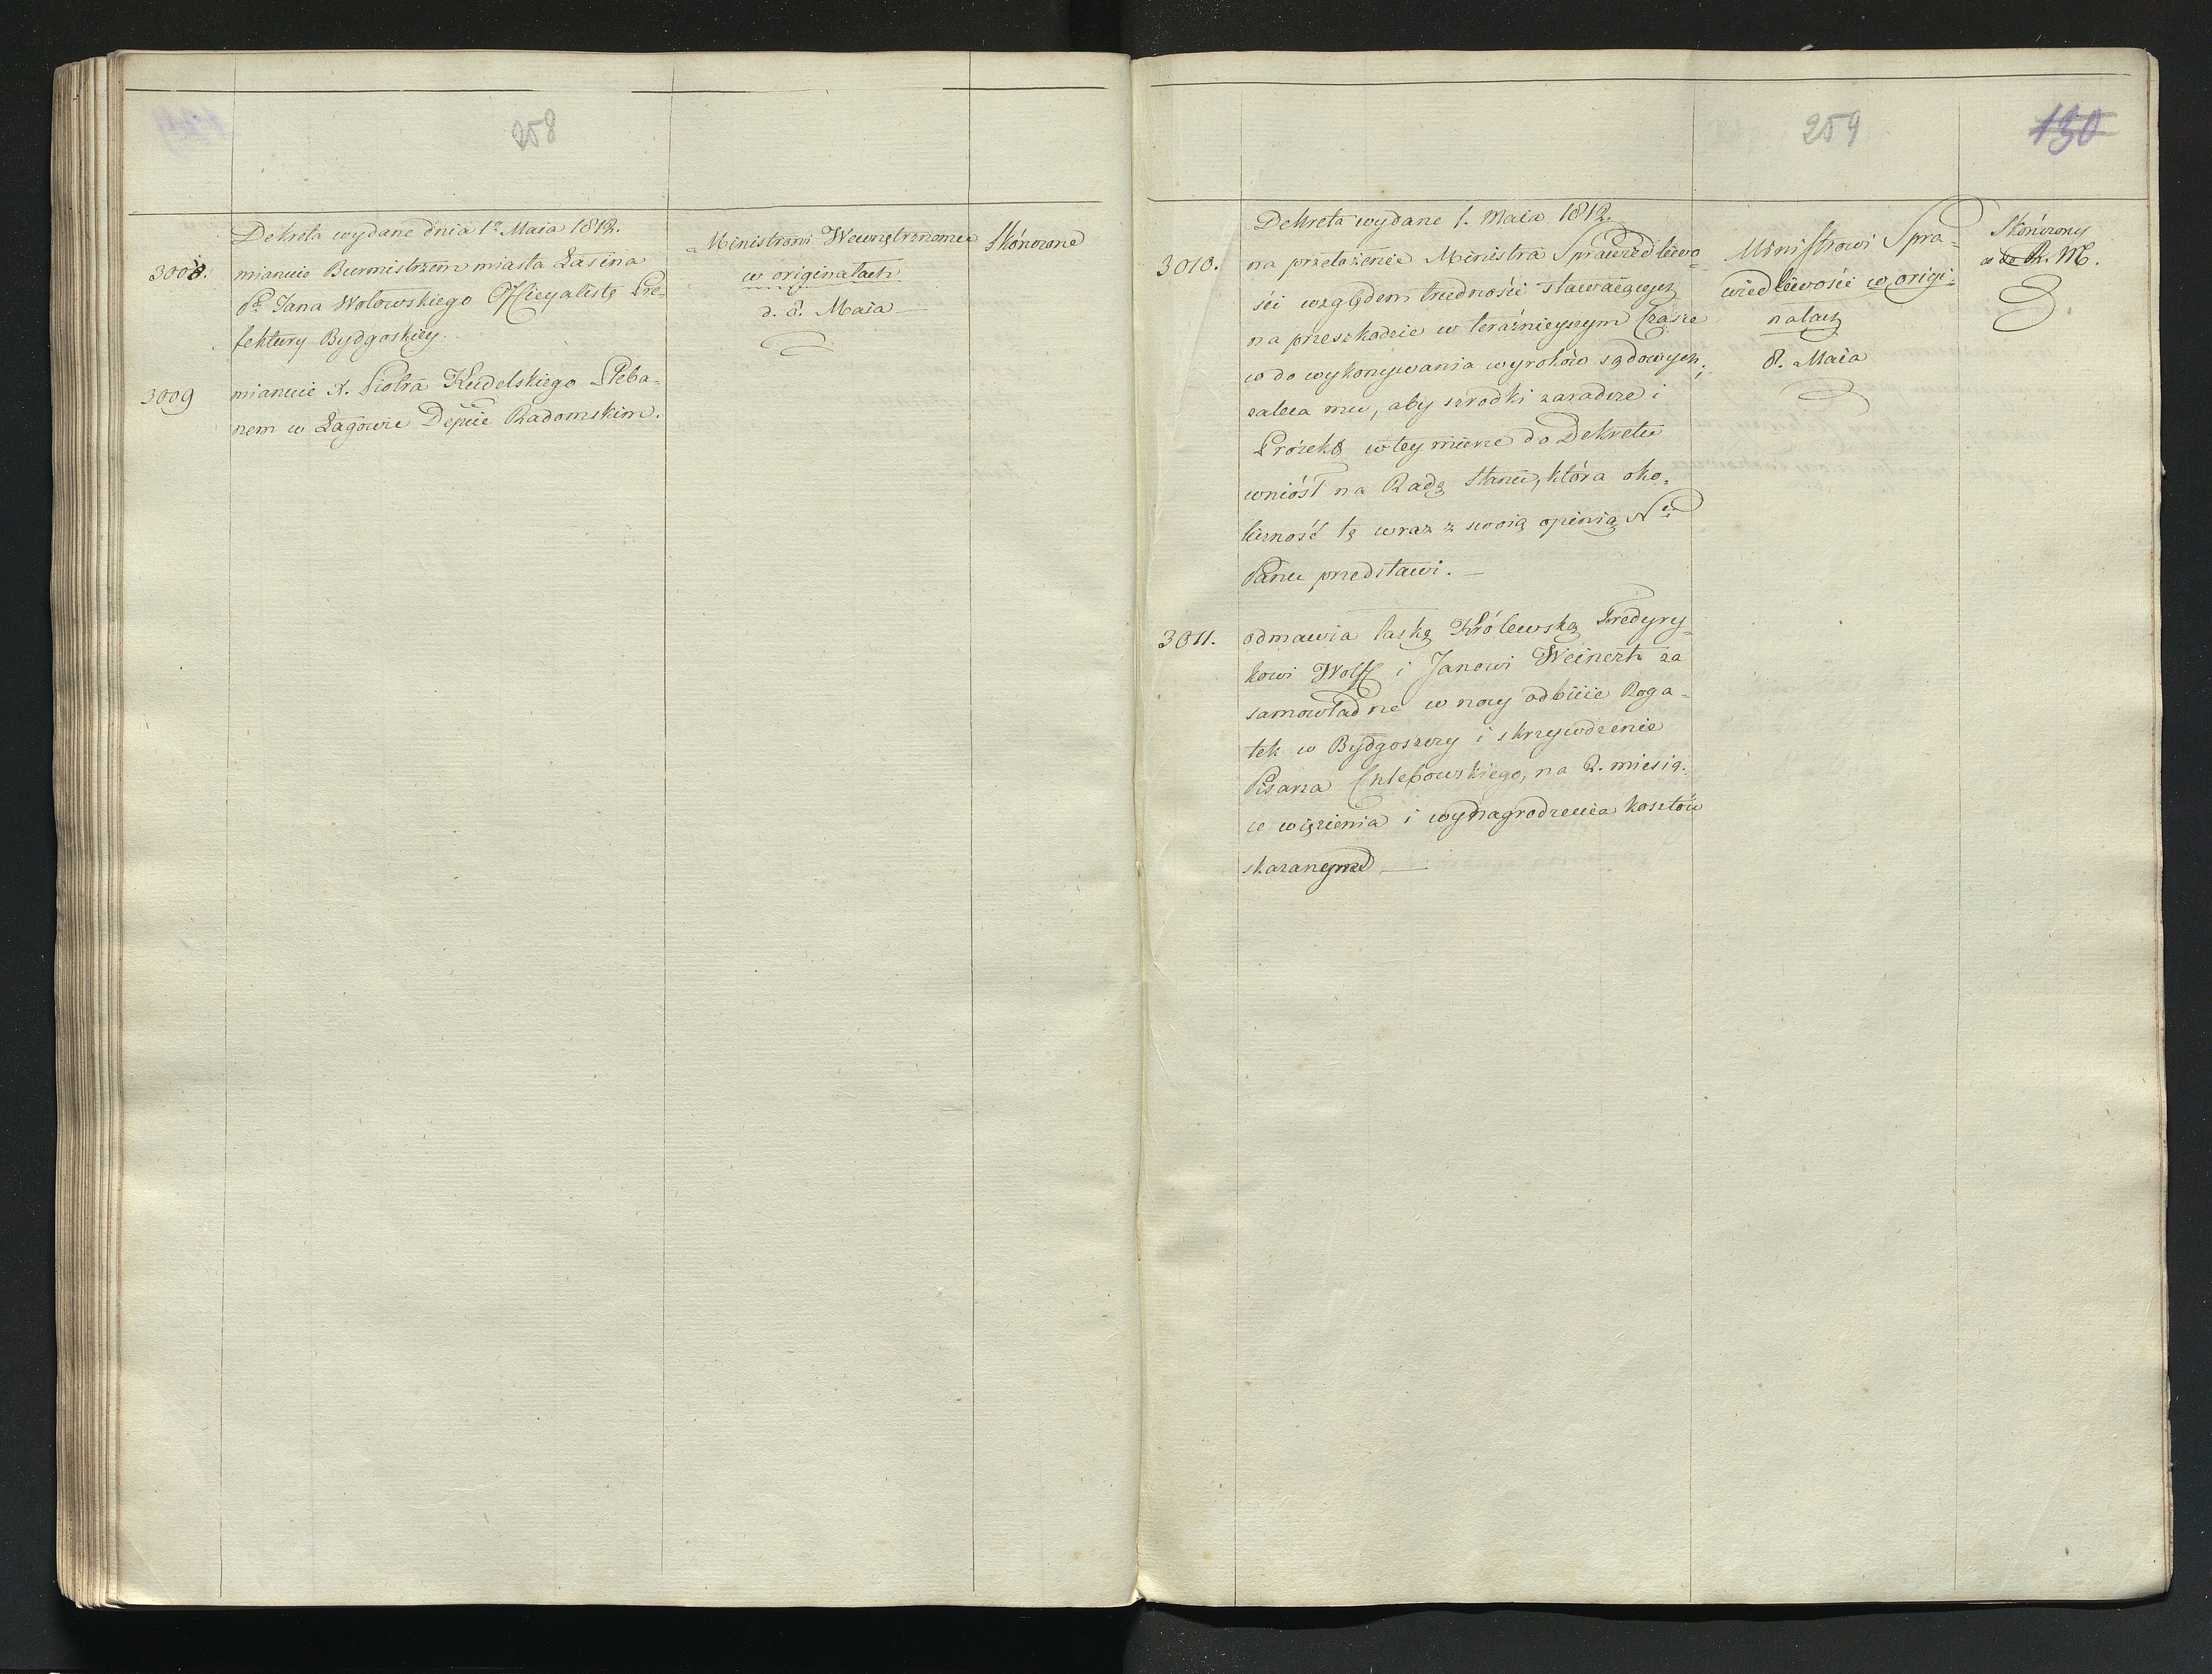 258
Dekreta wydane dnia 1º Maia 1812.
3008. mianuie Burmistrzem miasta Łasina
Pª Jana Wołowskiego Officyalistę Pre-
fektury Bydgoskiey.
3009 mianuie X. Piotra Kudelskiego Pleba-
nem w Łagowie Depcie Radomskim.
Ministrowi Wewnętrznemu
w originałach
d. 8. Maia
Skónczone
259
130
Dekreta wydane 1. Maia 1812.
3010. na przełożenie Ministra Sprawiedliwo-
ści względem trudności stawaiących
na przeszkodzie w teraźnieyszym Czasie
co do wykonywania wyroków sądowych;
zaleca mu, aby szrodki zaradcze i
Proiekt w tey mierze do Dekretu
wniósł na Radę Stanu, która oko-
liczność tę wraz z swoią opinią Nª
Panu przedstawi.
3011. odmawia łaskę Królewską Fredyry-
kowi Wolff i Janowi Weinert za
samowładne w nocy odbicie Roga-
tek w Bydgoszczy i skrzywdzenie
Pisarza Chlebowskiego, na 2. miesią-
ce więzienia i wynagrodzenia kosztów
skazanym
Ministrowi Spra-
wiedliwości w origi-
nałach
8. Maia
Skónczony
R. M.